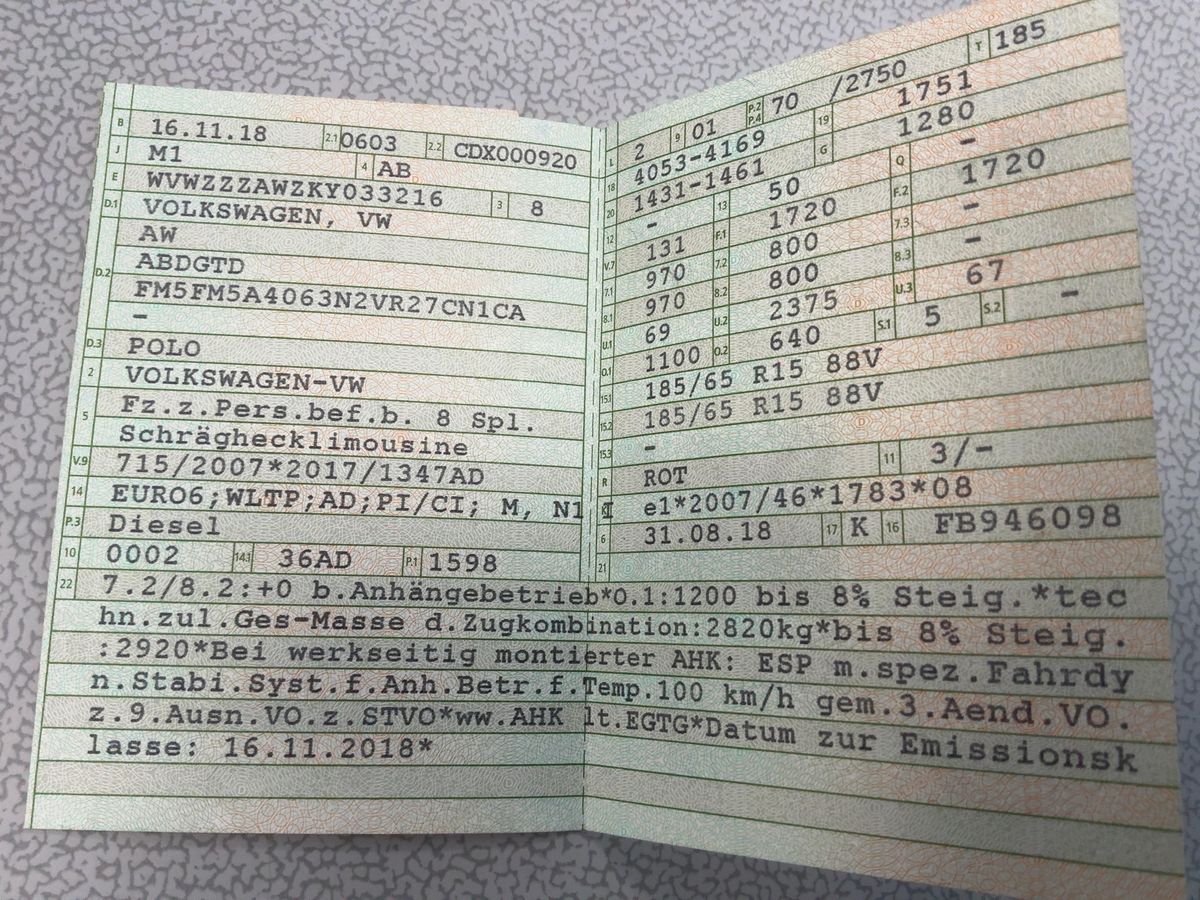 B 16.11.18 2.1 0603 2.2 CDX000920
J M1 4 AB
E WVWZZZAWZKY033216 3 8
D.1 VOLKSWAGEN, VW
AW
D.2 ABDGTD
FM5FM5A4063N2VR27CN1CA
–
D.3 POLO
2 VOLKSWAGEN-VW
5 Fz.z.Pers.bef.b. 8 Spl.
Schräghecklimousine
V.9 715/2007*2017/1347AD
14 EURO6;WLTP;AD;PI/CI; M, N1 I
P.3 Diesel
10 0002 14.1 36AD P.1 1598
L 2 9 01 P.2 P.4 70 /2750 T 185
18 4053-4169 19 1751
20 1431-1461 G 1280
12 – 13 50 Q –
V.7 131 F.1 1720 F.2 1720
7.1 970 7.2 800 7.3 –
8.1 970 8.2 800 8.3 –
U.1 69 U.2 2375 U.3 67
O.1 1100 O.2 640 S.1 5 S.2 –
15.1 185/65 R15 88V
15.2 185/65 R15 88V
15.3 –
R ROT 11 3/–
K e1*2007/46*1783*08
6 31.08.18 17 K 16 FB946098
21
22 7.2/8.2:+0 b.Anhängebetrieb*O.1:1200 bis 8% Steig.*tec
hn.zul.Ges-Masse d.Zugkombination:2820kg*bis 8% Steig.
:2920*Bei werkseitig montierter AHK: ESP m.spez.Fahrdy
n.Stabi.Syst.f.Anh.Betr.f.Temp.100 km/h gem.3.Aend.VO.
z.9.Ausn.VO.z.STVO*ww.AHK lt.EGTG*Datum zur Emissionsk
lasse: 16.11.2018*